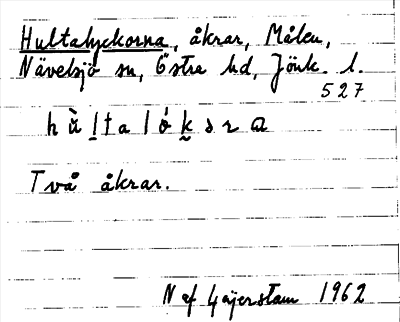 Hultalyckorna, åkrar, Målen,
Nävelsjö sn, Östra hd, Jönk. l.
527
h ù̀ l̠ t a l ó k̬ s r ɑ
Två åkrar.
N af Geijerstam 1962